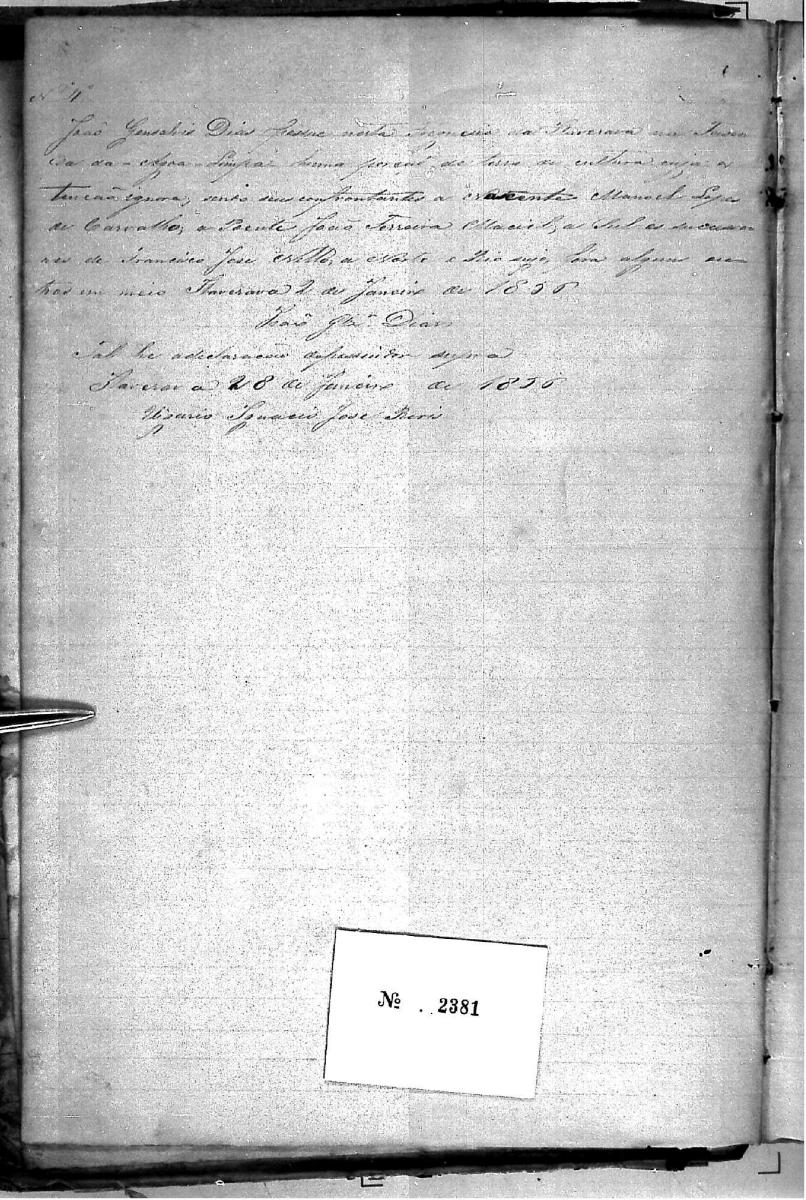 Nº 4º
João Gonsalvis Dias possue nesta Freguesia da Itaverava na Fasen
da da Agoa Limpa huma porçaõ de terra de cultura cuja ex
tencão ignora, sendo seus confrontantes a nascente Manoel Lopes
de Carvalho, a Poente João Ferreira Maciel, a Sul os
de Francisco José a Norte o Rio
em meio Itaverava 2 de Janeiro de 1856
João Glz. Dias
Tal he a declaracão do
Itaverava 28 de Janeiro de 1856
Vigario Ignacio José
Nº . 2381